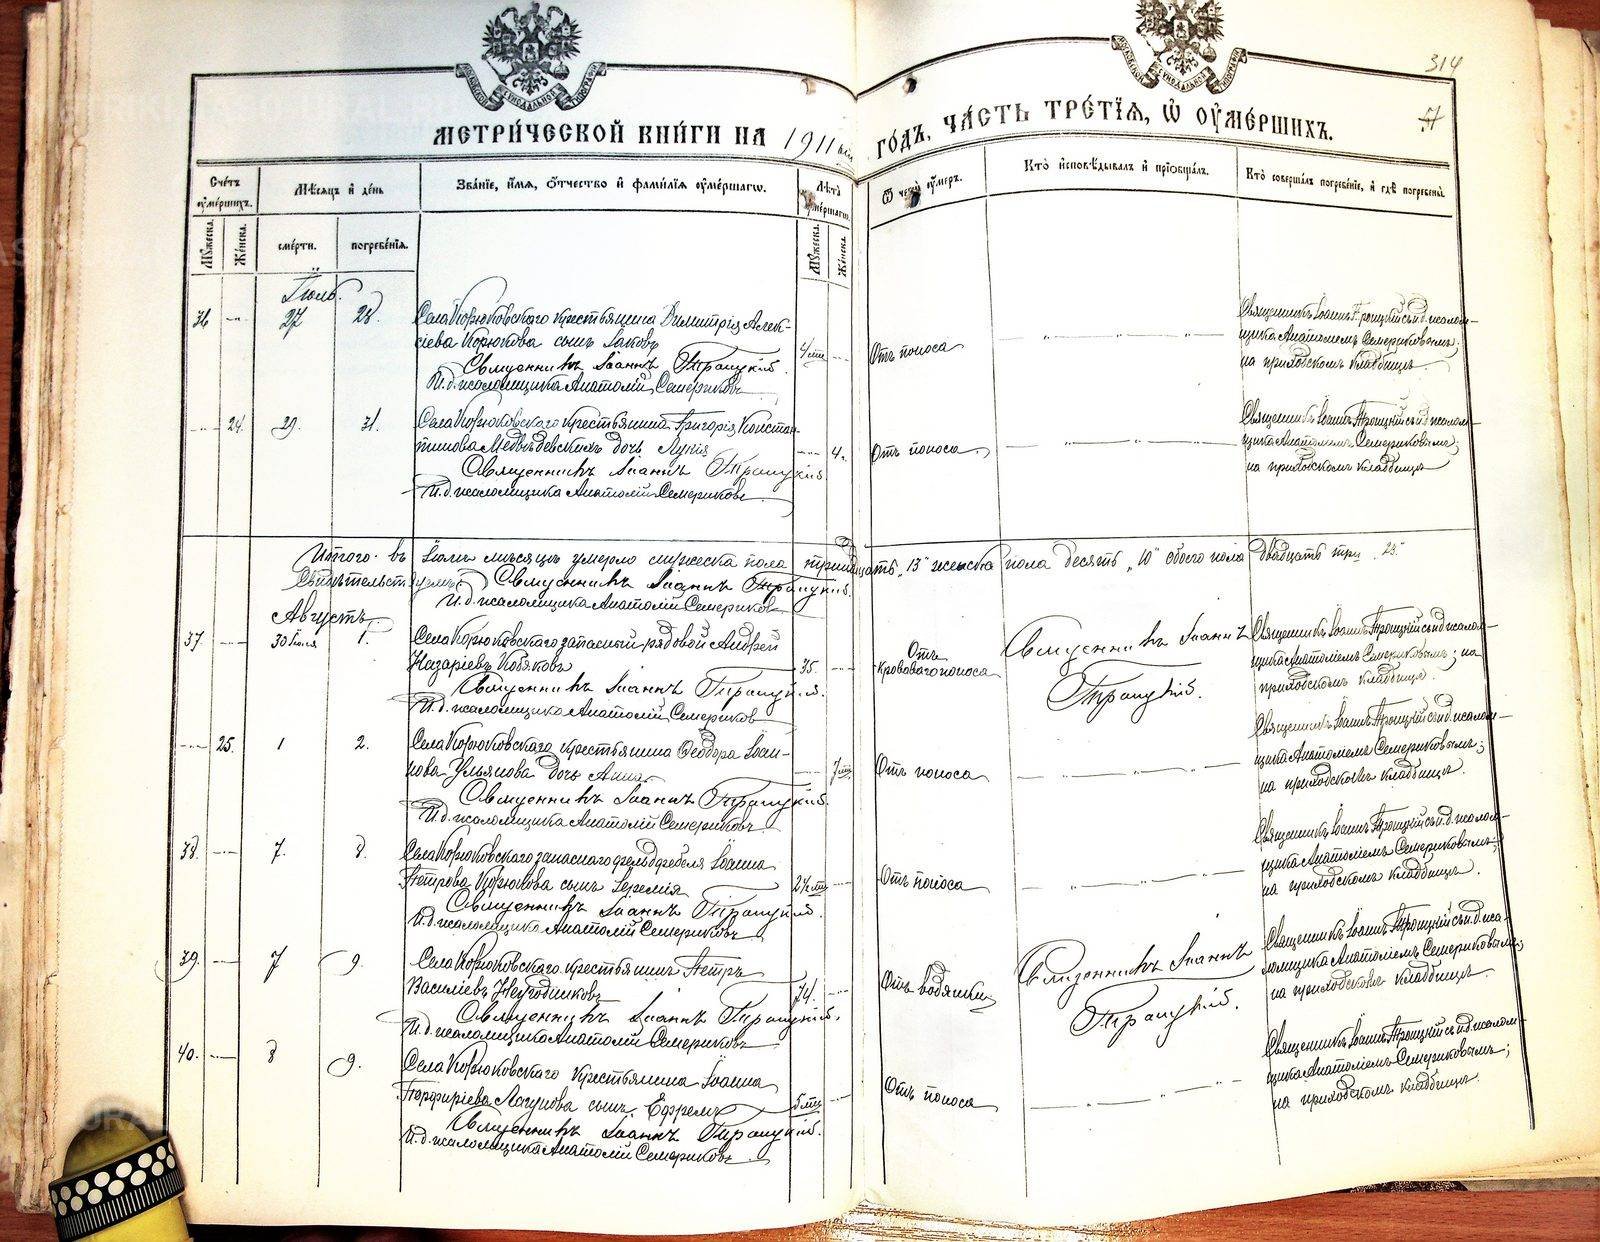 314
МЕТРИЧЕСКОЙ КНИГИ НА 1911 ГОДЪ, ЧАСТЬ ТРЕТІЯ, Ѿ ОУМЕРШИХЪ.
Счетъ оумершихъ.
Мѣсяцъ и день
Званіе, имя, отчество и фамилія оумершагω.
Лѣта оумершагω.
Ѿ чегω оумеръ.
Кто исповѣдывалъ и пріобщалъ.
Кто совершалъ погребеніе, и гдѣ погребены.
Мꙋжеска.
Женска.
смерти.
погребенія.
Мꙋжеска.
Женска.
Іюль.
36 27 28.
Села Корюковскаго крестьянина Димитрія Алек-
сіева Корюкова сынъ Іаковъ
Священникъ Іоаннъ Троицкій.
И.д. псаломщика Анатолій Семериковъ
Отъ поноса
Священникъ Іоаннъ Троицкій съ и.д. псалом-
щика Анатоліемъ Семериковымъ;
на приходскомъ кладбищѣ
24. 29. 31.
Села Корюковскаго крестьянина Григорія Констан-
тинова Медвѣдевскихъ дочь Лукія
4.
Священникъ Іоаннъ Троицкій
И.д. псаломщика Анатолій Семериковъ
Отъ поноса
Священникъ Іоаннъ Троицкій съ и.д. псалом-
щика Анатоліемъ Семериковымъ;
на приходскомъ кладбищѣ
Итого въ Іюлѣ мѣсяцѣ умерло мужеска пола тринадцать „13“ женска пола десять „10“ обоего пола двадцать три „23“
Священникъ Іоаннъ Троицкій.
И.д. псаломщика Анатолій Семериковъ
Августъ.
37. 30 Іюля 1.
Села Корюковскаго запасный рядовой Андрей
Назаріевъ Кобяковъ
35.
Священникъ Іоаннъ Троицкій.
И.д. псаломщика Анатолій Семериковъ
Отъ
кроваваго поноса
Священникъ Іоаннъ
Троицкій.
Священникъ Іоаннъ Троицкій съ и.д. псалом-
щика Анатоліемъ Семериковымъ; на
приходскомъ кладбищѣ.
25. 1 2.
Села Корюковскаго крестьянина Ѳеодора Іоан-
нова Ульянова дочь Анна
Священникъ Іоаннъ Троицкій.
И.д. псаломщика Анатолій Семериковъ
Отъ поноса
Священникъ Іоаннъ Троицкій съ и.д. псалом-
щика Анатоліемъ Семериковымъ;
на приходскомъ кладбищѣ.
38. 7. 8.
Села Корюковскаго запаснаго фельдфебеля Іоанна
Петрова Корюкова сынъ Іеремія
Священникъ Іоаннъ Троицкій.
И.д. псаломщика Анатолій Семериковъ
Отъ поноса
Священникъ Іоаннъ Троицкій съ и.д. псалом-
щика Анатоліемъ Семериковымъ;
на приходскомъ кладбищѣ.
39. 7 9.
Села Корюковскаго крестьянинъ Петръ
Василіевъ Негодниковъ
74.
Священникъ Іоаннъ Троицкій.
И.д. псаломщика Анатолій Семериковъ
Отъ водянки
Священникъ Іоаннъ
Троицкій.
Священникъ Іоаннъ Троицкій съ и.д. пса-
ломщика Анатоліемъ Семериковымъ;
на приходскомъ кладбищѣ.
40. 8 9.
Села Корюковскаго крестьянина Іоанна
Порфиріева Лагунова сынъ Ефремъ
Священникъ Іоаннъ Троицкій.
И.д. псаломщика Анатолій Семериковъ
Отъ поноса
Священникъ Іоаннъ Троицкій съ и.д. псалом-
щика Анатоліемъ Семериковымъ;
на приходскомъ кладбищѣ.